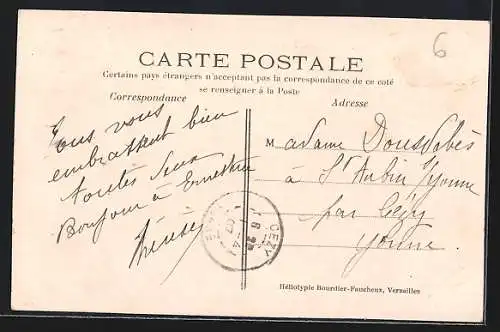 6
CARTE POSTALE
Certains pays étrangers n'acceptant pas la correspondance de ce coté
se renseigner à la Poste
Correspondance
Adresse
Tous vous
embrassent bien
toutes deux
Bonjour à Ernestine
Thérèse
CEZY
Madame Dousdebès
à St Aubin s/Yonne
par Cézy
Yonne
Héliotypie Bourdier-Faucheux, Versailles